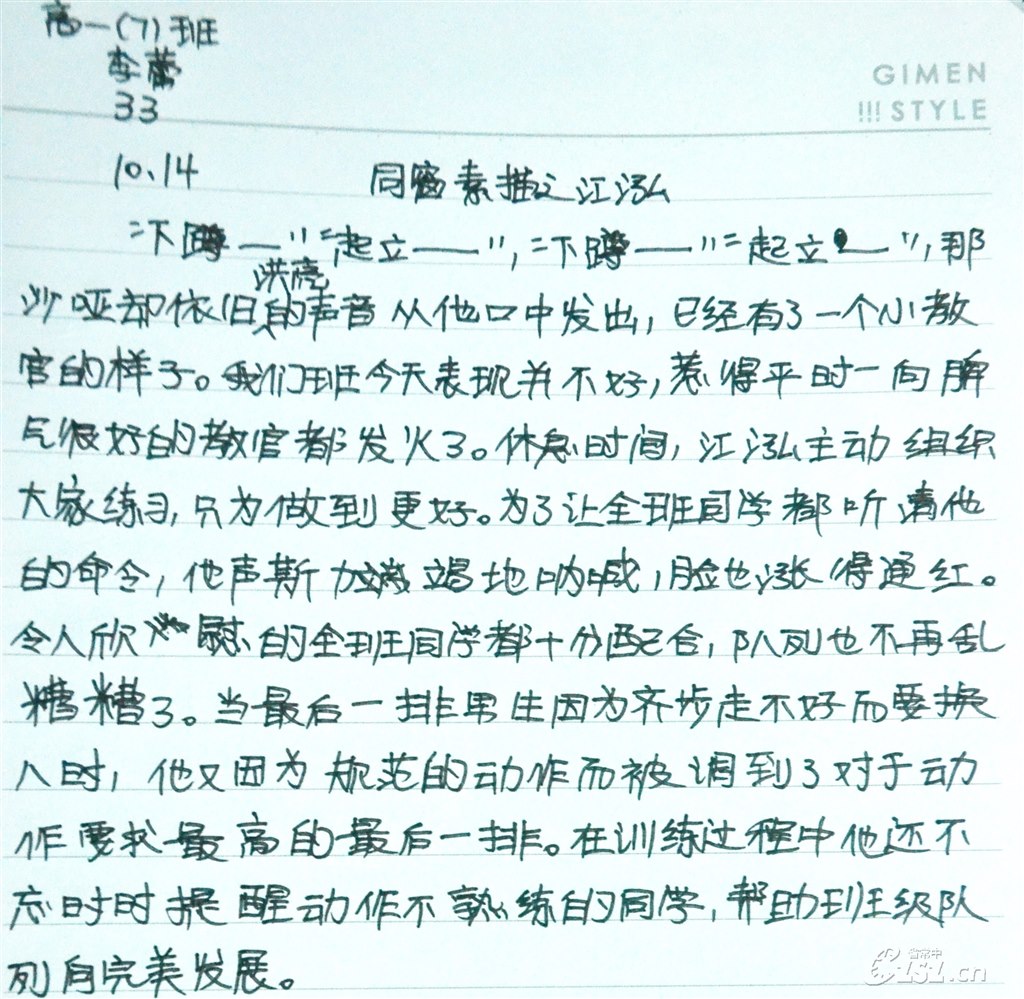 高一(7)班
李蕾
33
GIMEN
!!! STYLE
10.14
同窗素描之江泓
“下蹲——”“起立——”,“下蹲——”“起立——”,那
洪亮
沙哑却依旧的声音从他口中发出,已经有了一个小教
官的样子。我们班今天表现并不好,惹得平时一向脾
气很好的教官都发火了。休息时间,江泓主动组织
大家练习,只为做到更好。为了让全班同学都听清他
的命令,他声斯力竭地呐喊,脸也涨得通红。
令人欣慰的全班同学都十分配合,队列也不再乱
糟糟了。当最后一排男生因为齐步走不好而要换
人时,他又因为规范的动作而被调到了对于动
作要求最高的最后一排。在训练过程中他还不
忘时时提醒动作不熟练的同学,帮助班级队
列向完美发展。
省常中
.cn